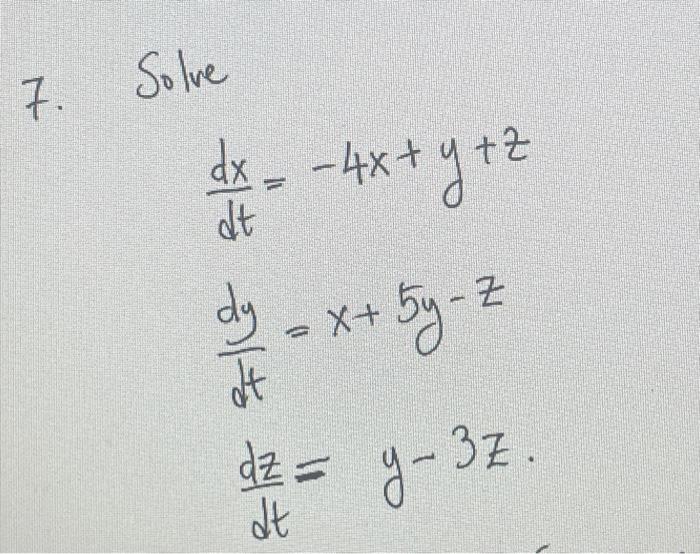 7. Solve
dx/dt = -4x + y + z
dy/dt = x + 5y - z
dz/dt = y - 3z.